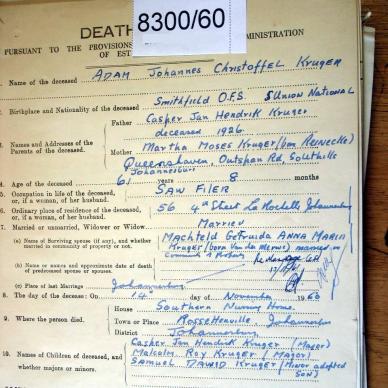 8300/60
DEATH
PURSUANT TO THE PROVISIONS ADMINISTRATION
OF EST
1. Name of the deceased ADAM Johannes Christoffel KRUGER
2. Birthplace and Nationality of the deceased Smithfield O.F.S S Union NATIONAL
3. Names and Addresses of the Parents of the deceased.
Father Casper Jan Hendrik Kruger
deceased 1926.
Mother Martha Moses Kruger (born Reinecke)
Queenshaven, Outspan Rd, Southills
Johannesburg
4. Age of the deceased 61 years 8 months
5. Occupation in life of the deceased, or, if a woman, of her husband. SAW FILER
6. Ordinary place of residence of the deceased, or, if a woman, of her husband. 56 4th Street La Rochelle Johannesburg
7. Married or unmarried, Widower or Widow MARRIED
(a) Name of Surviving spouse (if any), and whether married in community of property or not. MACHTELD Getruida ANNA MARIA
KRUGER (born Van der Merwe) married in
Community of Property
(b) Name and approximate date of death of predeceased spouse or spouses.
(c) Place of last Marriage Johannesburg
8. The day of the decease: On 14 day of November 1960
9. Where the person died.
House Southern Nursing Home,
Town or Place Rossettenville Johannesburg
District Johannesburg
10. Names of Children of deceased, and whether majors or minors.
Casper Jan Hendrik Kruger (Major)
Malcolm Roy Kruger (Major)
SAMUEL DAWID Kruger (Minor adopted
Son)